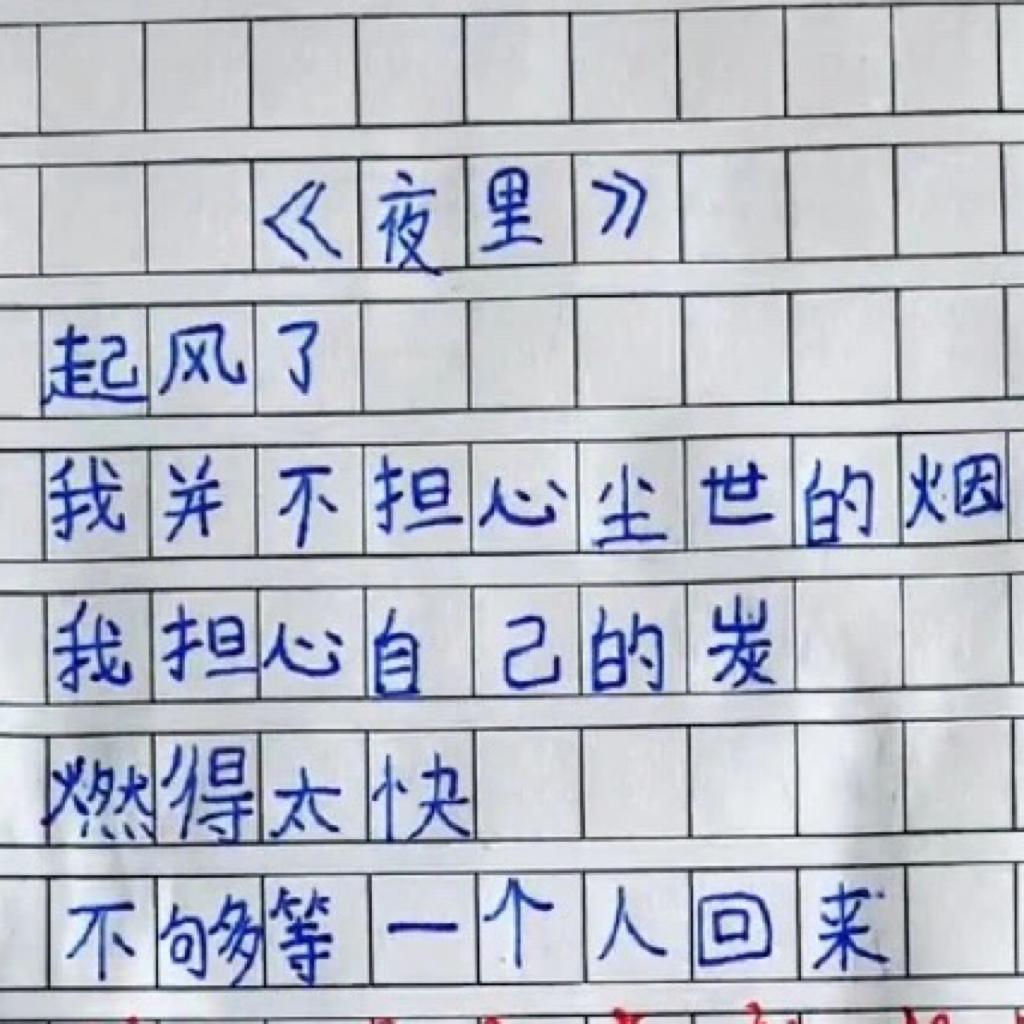 《夜里》
起风了
我并不担心尘世的烟
我担心自己的炭
燃得太快
不够等一个人回来